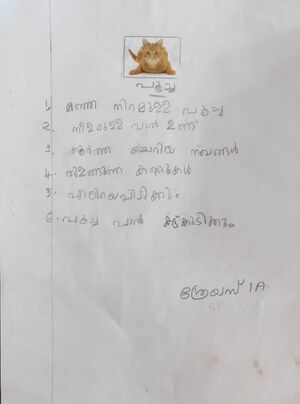 പൂച്ച
1. മഞ്ഞ നിറമുള്ള പൂച്ച
2. നീളമുള്ള വാൽ ഉണ്ട്
3. കൂർത്ത ചെറിയ നഖങ്ങൾ
4. തിളങ്ങുന്ന കണ്ണുകൾ
5. എലിയെപിടിക്കും.
6. പൂച്ച പാൽ കട്ട്കുടിക്കും.
ത്രേയസ് 1A